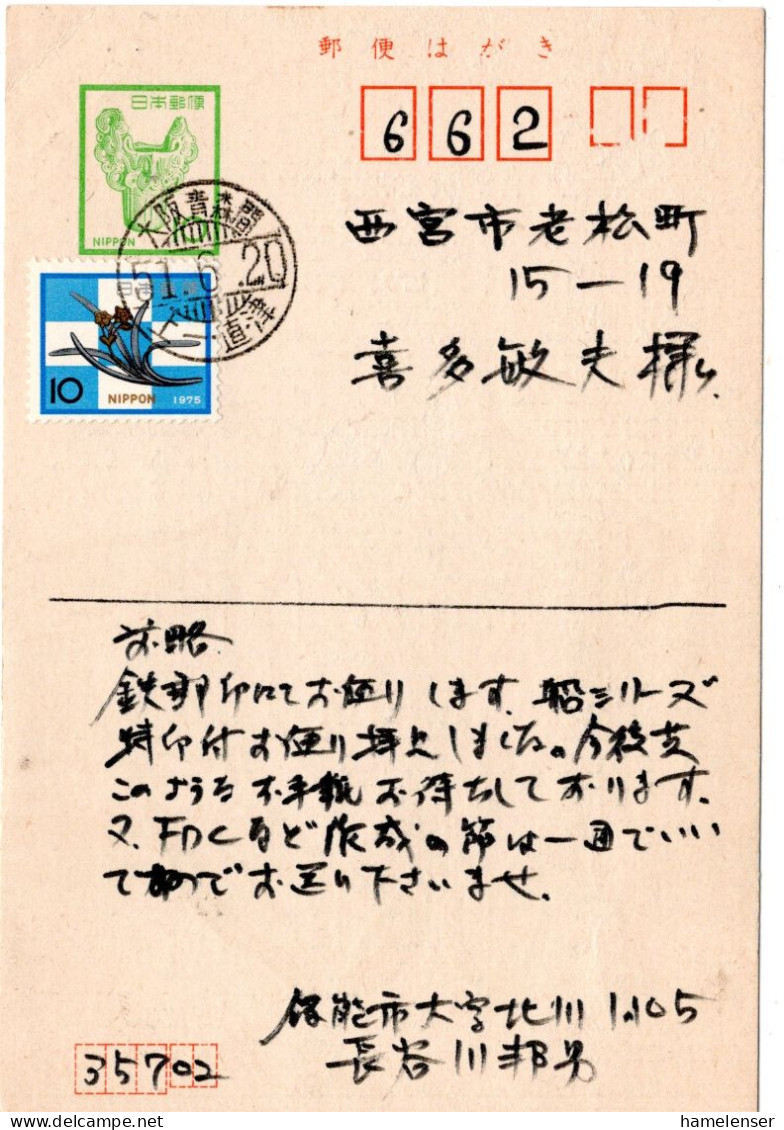 郵便はがき
日本郵便
NIPPON
662
大阪青森間
51.6.20
直津
日本郵便
10
NIPPON 1975
西宮市老松町
15-19
喜多敏夫様
前略
鉄郵印にてお便りします。船シリーズ
特印付お便り拝見しました。今後共
このようなお手紙お待ちしております。
又、FDCなど作成の節は一通でいい
でお送り下さいませ。
飯能市大字北川1105
長谷川邦男
35702
hamelenser